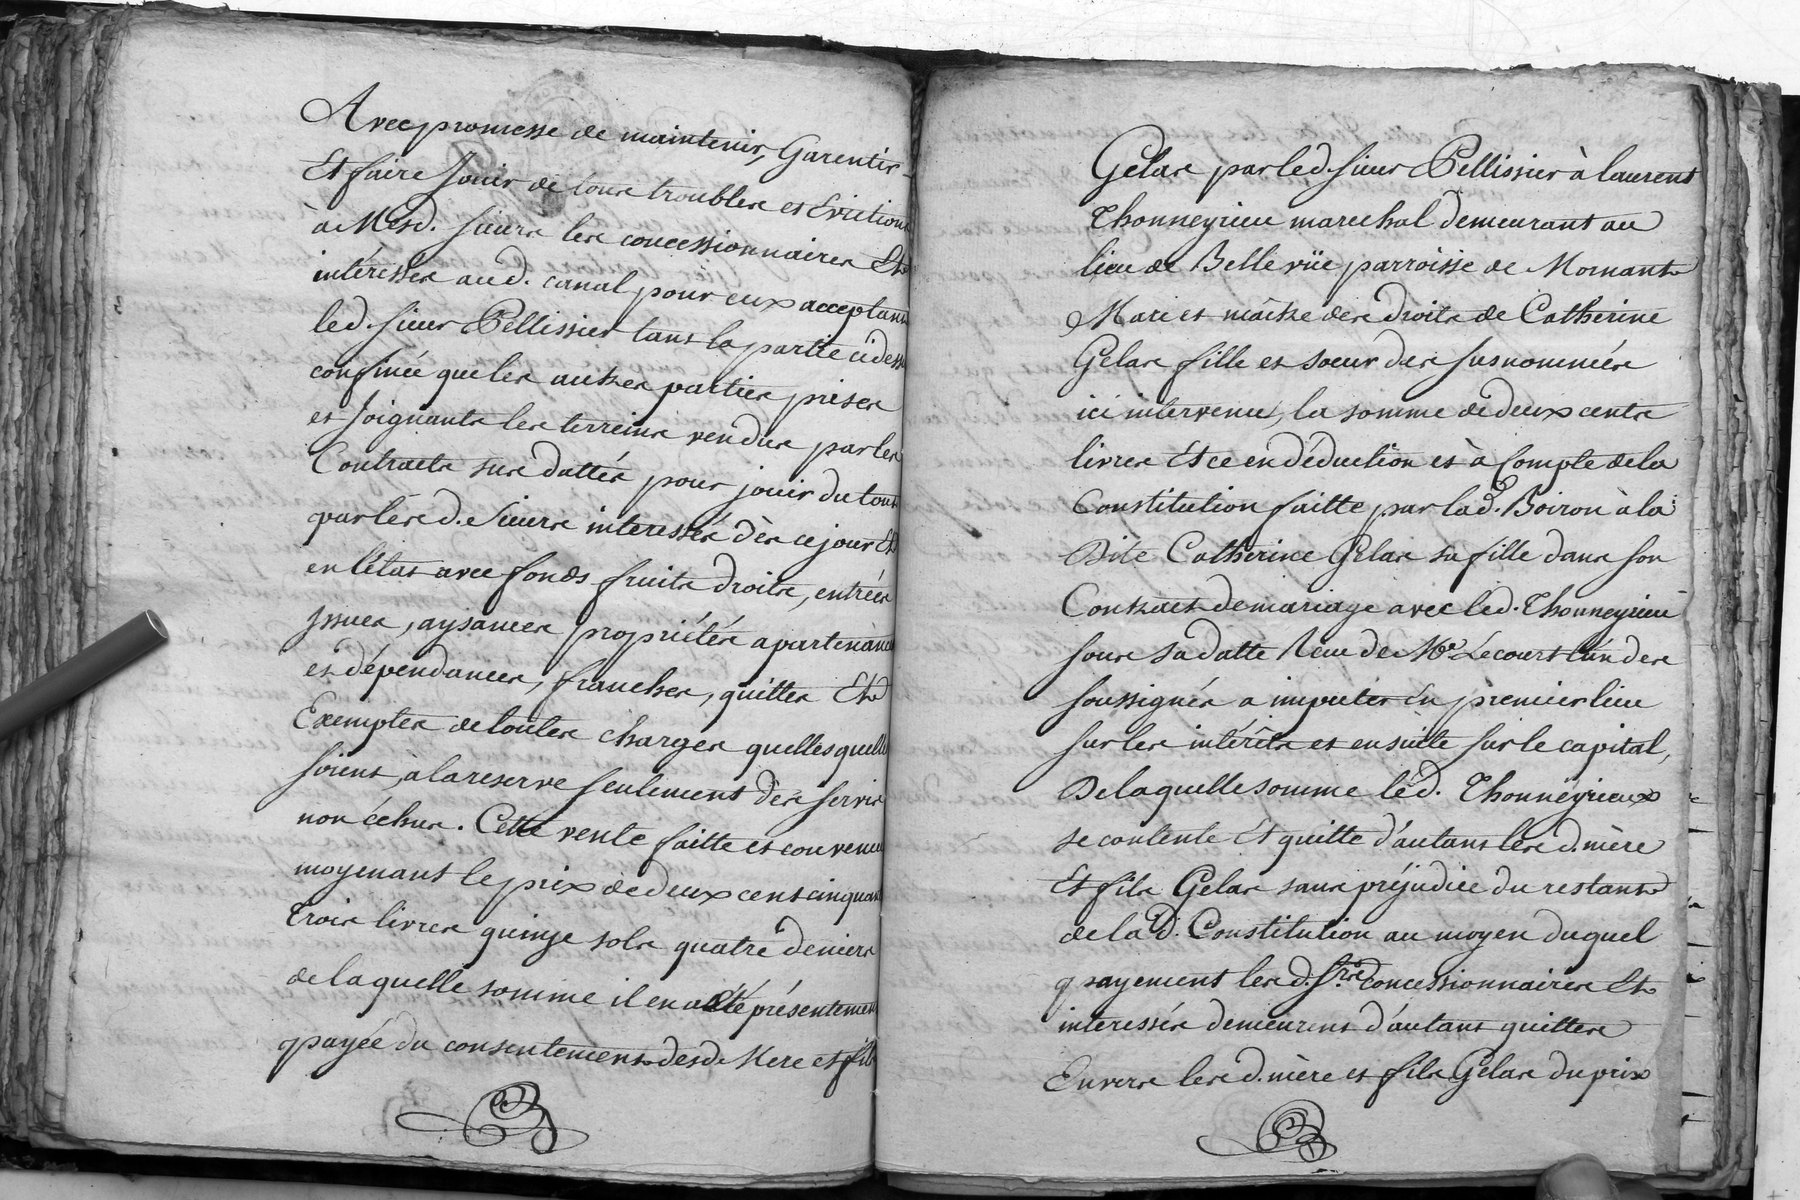 Avec promesse de maintenir, Garentir
Et faire Jouir de tous troubles et Evictions
à Mesd. sieurs les concessionnaires Et
intéressés aud. canal pour eux acceptant
led. sieur Pellissier tant la partie ci dessus
confinée que les autres parties prises
et joignants les terreins vendus par les
Contracts sus dattés pour jouir du tout
par lesd. sieurs interessés dès ce jour Et
en l'état avec fonds fruits droits, entrées
issues, aysances propriétés apartenances
et dépendances, franches, quittes Et
Exemptes de toutes charges quelles quelles
soient, à la reserve seulement des servis
non échus. Cette vente faitte et convenue
moyenant le prix de deux cent cinquante
trois livres quinze sols quatre deniers
de laquelle somme il en a été présentement
payée du consentement desd. Mere et fils
Gelas par led. sieur Pellissier à laurent
Thonneyrieu marechal demeurant au
lieu de Belle vüe parroisse de Mornant
Mari et maitre des droits de Catherine
Gelas fille et soeur des susnommés
ici intervenu, la somme de deux cents
livres Et ce en déduction et à Compte de la
Constitution faitte par lad. Boiron à la
Dite Catherine Gelas sa fille dans son
Contract de mariage avec led. Thonneyrieu
sous sa datte Reçu de Me Lecourt l'un des
soussignés a imputer en premier lieu
sur les intérêts et ensuite sur le capital,
De laquelle somme led. Thonneyrieux
se contente Et quitte d'autant lesd. mère
Et fils Gelas sans préjudice du restant
de lad. Constitution au moyen duquel
payement lesd. Srs concessionnaires Et
interessés demeurent d'autant quittes
Envers lesd. mère et fils Gelas du prix